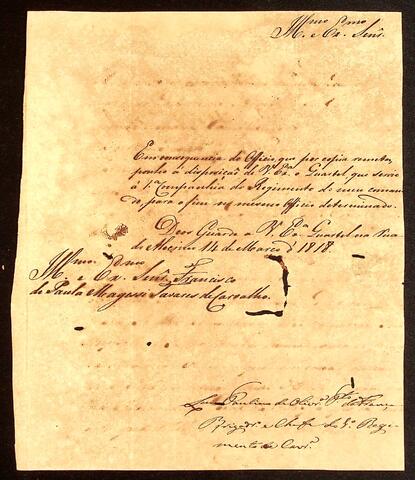 Illmo. e Exmo. Senr.
Em consequencia do Officio, que por copia remetto,
ponho à disposição de V. Exa. o Quartel, que servio
à 1.a Companhia do Regimento do meu coman
do, para o fim no mesmo Officio determinado.
Deos Guarde a V. Exa. Quartel na Rua
de 14 de Março d 1818.
Illmo. e Exmo. Senr. Francisco
de Paula Magessi Tavares de Carvalho.
Luis Paulino de Olivra. Pto. da França
Brigadro. e Chefe do Regi
mento de Cavra.